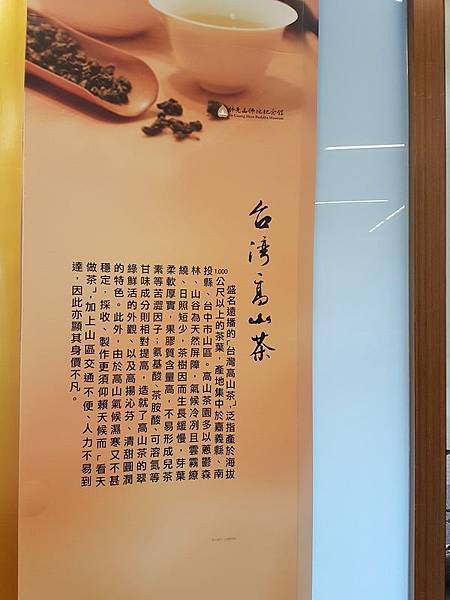 佛光山佛陀紀念館
Fo Guang Shan Buddha Museum
台湾高山茶
盛名遠播的「台灣高山茶」泛指產於海拔
1,000公尺以上的茶葉，產地集中於嘉義縣、南
投縣、台中市山區。高山茶園多以蓊鬱森
林、山谷為天然屏障，氣候冷冽且雲霧繚
繞、日照短少，茶樹因而生長緩慢，芽葉
柔軟厚實，果膠質含量高，不易形成兒茶
素等苦澀因子；氨基酸、茶胺酸、可溶氮等
甘味成分則相對提高，造就了高山茶的翠
綠鮮活的外觀、以及高揚沁芬、清甜圓潤
的特色。此外，由於高山氣候濕寒又不甚
穩定，採收、製作更須仰賴天候而「看天
做茶」，加上山區交通不便、人力不易到
達，因此亦顯其身價不凡。